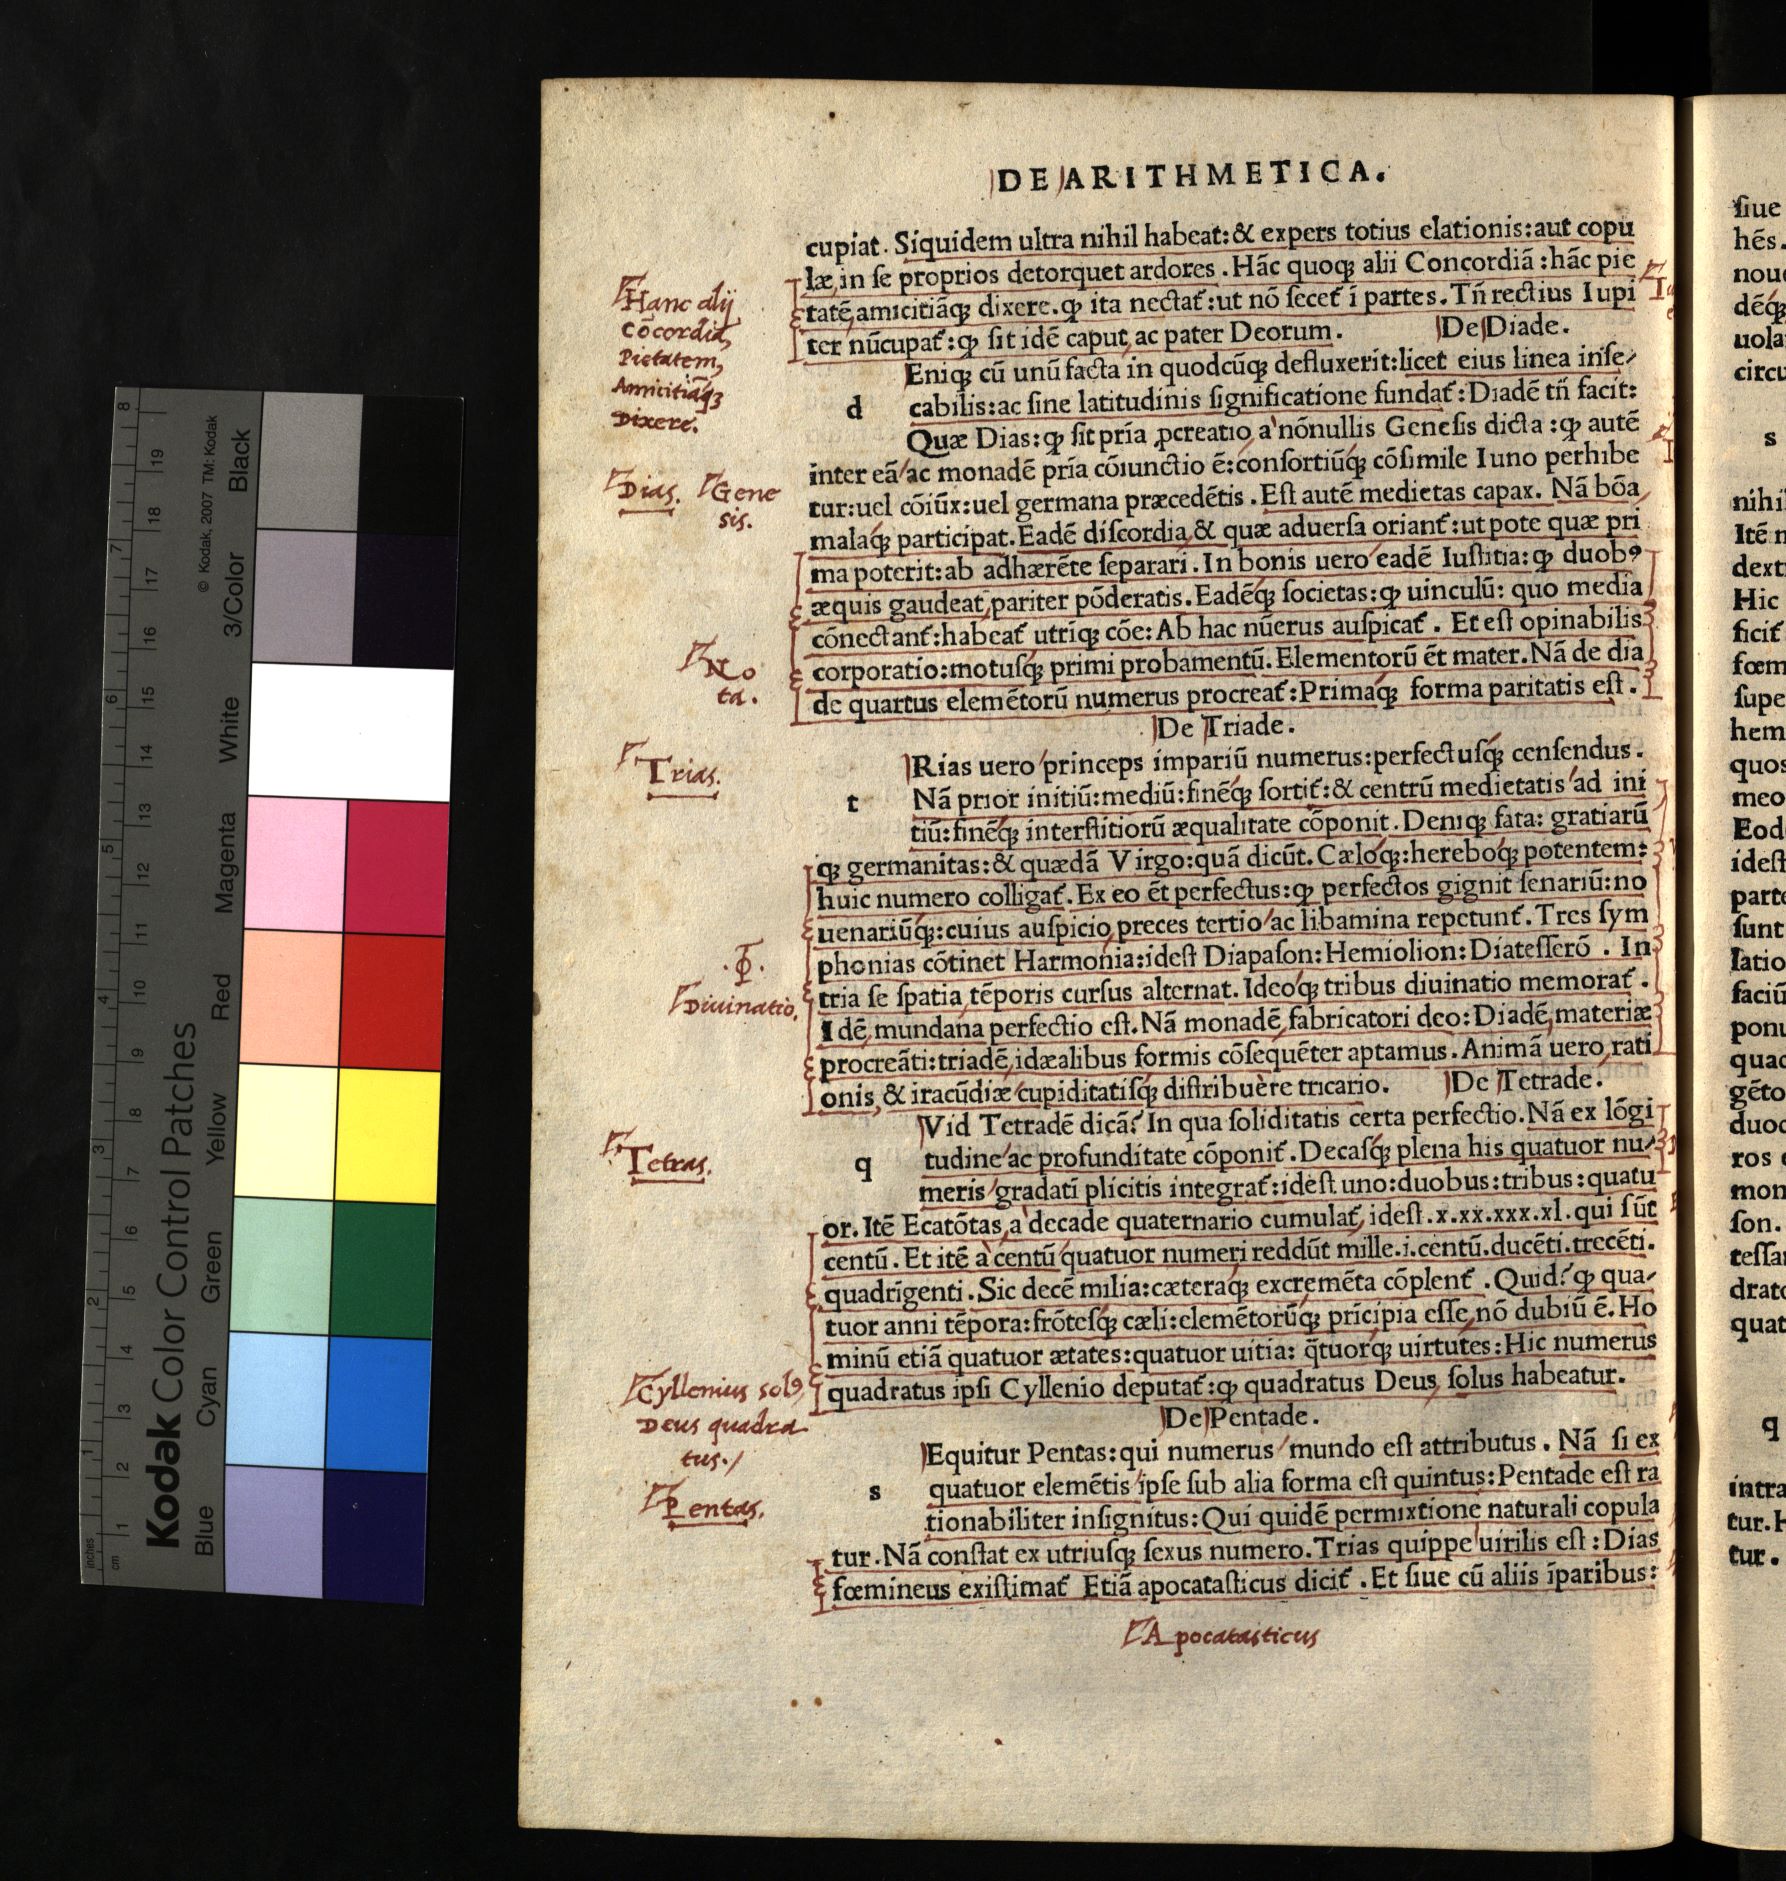 DE ARITHMETICA.
cupiat. Siquidem ultra nihil habeat:& expers totius elationis:aut copu
læ,in se proprios detorquet ardores. Hãc quoqꝫ alii Concordiã:hãc pie
tatẽ,amicitiãqꝫ dixere.ꝙ ita nectat᷑:ut nõ secet᷑ ĩ partes. Tñ rectius Iupi
ter nũcupat᷑:ꝙ sit idẽ caput,ac pater Deorum. De Diade.
Eniqꝫ cũ unũ facta in quodcũqꝫ defluxerit:licet eius linea inse/
d cabilis:ac sine latitudinis significatione fundat᷑:Diadẽ tñ facit:
Quæ Dias:ꝙ sit pría ꝓcreatio,a nõnullis Genesis dicta:ꝙ autẽ
inter eã/ac monadẽ pría cõiunctio ẽ:consortiũqꝫ cõsimile Iuno perhibe
tur:uel cõiũx:uel germana præcedẽtis. Est autẽ medietas capax. Nã bõa,
malaqꝫ participat. Eadẽ discordia,& quæ aduersa oriant᷑:ut pote quæ pri
ma poterit:ab adhærẽte separari. In bonis uero eadẽ Iustitia:ꝙ duobꝰ
æquis gaudeat,pariter põderatis. Eadẽqꝫ societas:ꝙ uinculũ: quo media
cõnectant᷑:habeat᷑ utriqꝫ cõe: Ab hac nũerus auspicat᷑. Et est opinabilis
corporatio:motusqꝫ primi probamentũ. Elementorũ ẽt mater. Nã de dia
de quartus elemẽtorũ numerus procreat᷑:Primaqꝫ forma paritatis est.
De Triade.
Rias uero princeps impariũ numerus:perfectusqꝫ censendus.
t Nã prior initiũ:mediũ:finẽqꝫ sortit᷑:& centrũ medietatis ad ini
tiũ:finẽqꝫ interstitiorũ æqualitate cõponit. Deniqꝫ fata: gratiarũ
qꝫ germanitas:& quædã Virgo:quã dicũt. Cæloqꝫ:hereboqꝫ potentem:
huic numero colligat᷑. Ex eo ẽt perfectus:ꝙ perfectos gignit senariũ:no
uenariũqꝫ:cuius auspicio,preces tertio/ac libamina repetunt᷑. Tres sym
phonias cõtinet Harmonia:idest Diapason:Hemiolion:Diatesserõ. In
tria se spatia,tẽporis cursus alternat. Ideoqꝫ tribus diuinatio memorat᷑.
Idẽ,mundana perfectio est. Nã monadẽ,fabricatori deo:Diadẽ,materiæ
procreãti:triadẽ,idæalibus formis cõsequẽter aptamus. Animã uero,rati
onis,& iracũdiæ/cupiditatisqꝫ distribuère tricario. De Tetrade.
Vid Tetradẽ dicã? In qua soliditatis certa perfectio. Nã ex lõgi
q tudine/ac profunditate cõponit᷑. Decasqꝫ plena his quatuor nu/
meris/gradatĩ plicitis integrat᷑:idest uno:duobus:tribus:quatu
or. Itẽ Ecatõtas,a decade quaternario cumulat᷑,idest.x.xx.xxx.xl.qui sũt
centũ. Et itẽ a centũ/quatuor numeri reddũt mille.i.centũ.ducẽti.trecẽti.
quadrigenti. Sic decẽ milia:cæteraqꝫ excremẽta cõplent᷑. Quid?ꝙ qua/
tuor anni tẽpora:frõtesqꝫ cæli:elemẽtorũqꝫ prícipia esse,nõ dubiũ ẽ. Ho
minũ etiã quatuor ætates:quatuor uitia: q̃tuorqꝫ uirtutes: Hic numerus
quadratus ipsi Cyllenio deputat᷑:ꝙ quadratus Deus,solus habeatur.
De Pentade.
Equitur Pentas:qui numerus/mundo est attributus. Nã si ex
s quatuor elemẽtis/ipse sub alia forma est quintus:Pentade est ra
tionabiliter insignitus: Qui quidẽ permixtione naturali copula
tur. Nã constat ex utriusqꝫ sexus numero. Trias quippe uirilis est: Dias
fœmineus existimat᷑ Etiã apocatasticus dicit᷑. Et siue cũ aliis ĩparibus:
Hanc alij
cõcordiã,
Pietatem,
Amicitiãqꝫ
Dixere.
Dias. Gene
sis.
No
ta.
Trias.
Diuinatio,
Tetras.
Cyllenius solꝰ
Deus quadra
tus./
Pentas.
Apocatasticus
siue
hẽs.
dẽqꝫ
circu
s
Itẽ n
Hic
ficit᷑
quos
meo
Eod
idest
parte
sunt
ponu
duod
ros
son.
quat
q
intra
tur. H
tur.
Kodak Color Control Patches
© Kodak, 2007 TM: Kodak
Blue Cyan Green Yellow Red Magenta White 3/Color Black
inches 1 2 3 4 5 6 7 8
cm 1 2 3 4 5 6 7 8 9 10 11 12 13 14 15 16 17 18 19